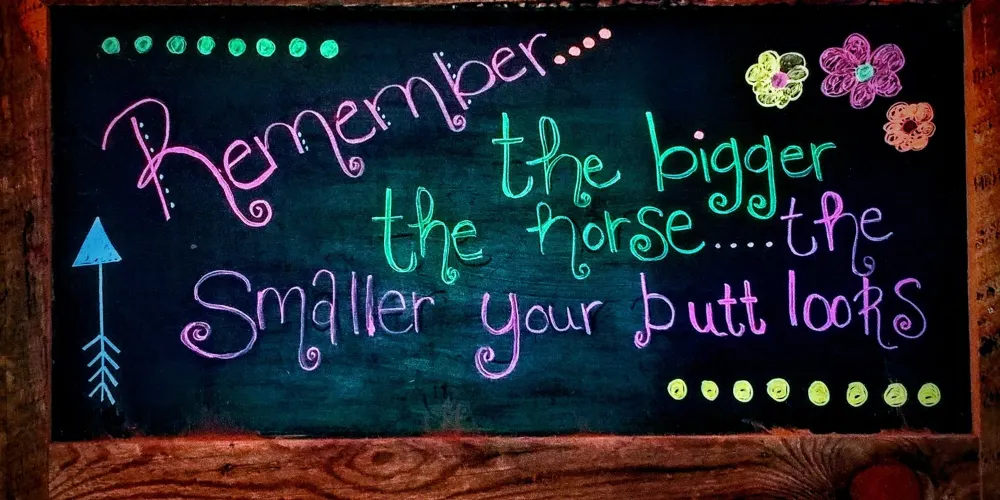 Remember...
the bigger
the horse.....the
Smaller your butt looks